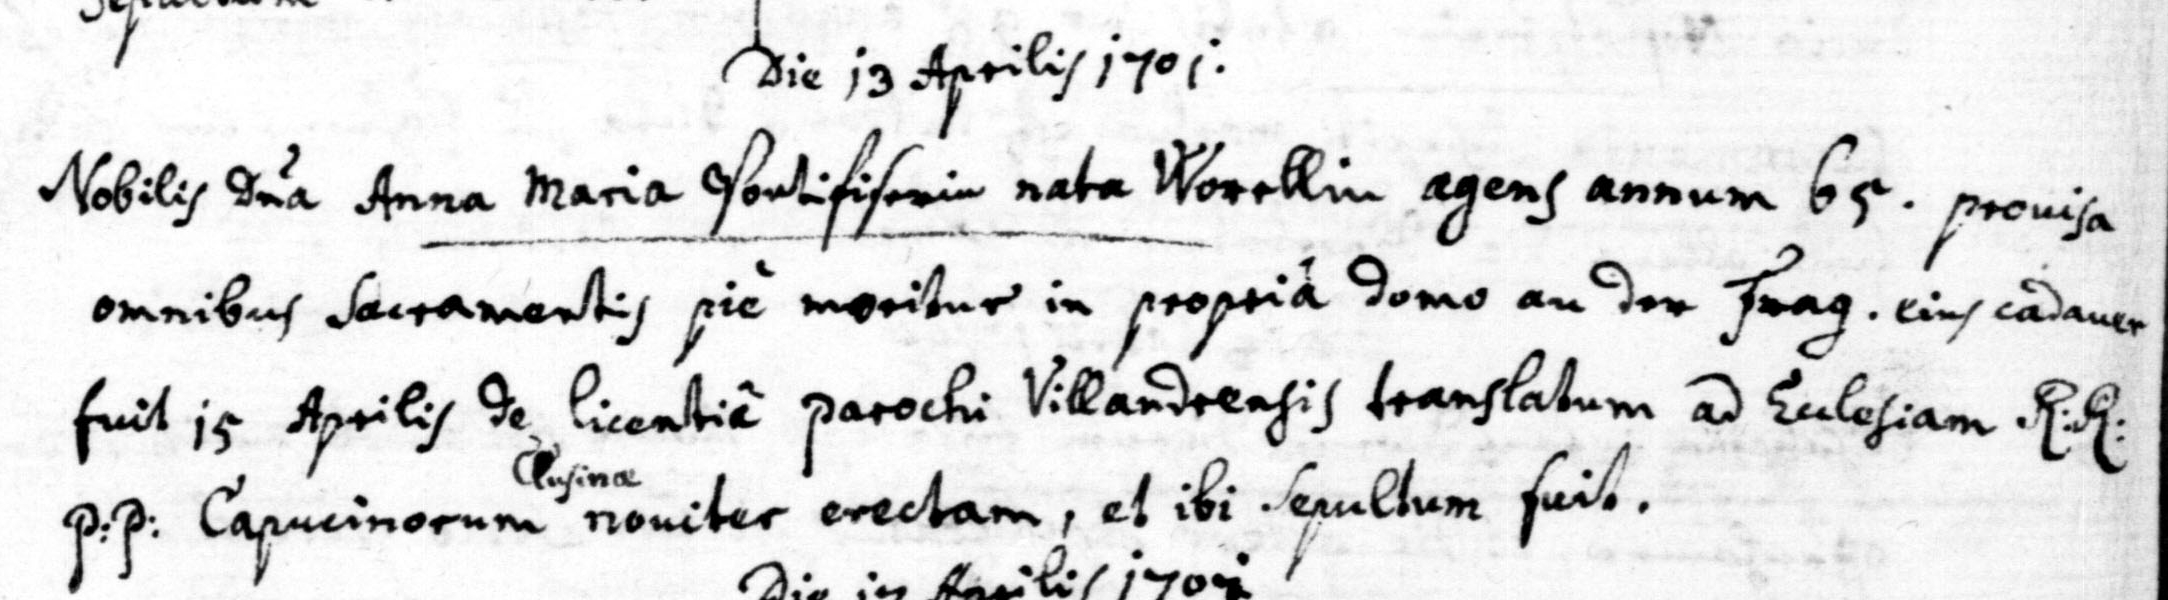 Die 13 Aprilis 1701.
Nobilis Dna Anna Maria nata Worellin agens annum 65. provisa
omnibus Sacramentis piè moritur in propriâ domo an der Frag. eius cadauer
fuit 15 Aprilis de licentiâ parochi Villandrensis translatum ad Ecclesiam R:R:
Clusinæ
P:P: Capucinorum nouiter erectam, et ibi sepultum fuit.
Aprilis